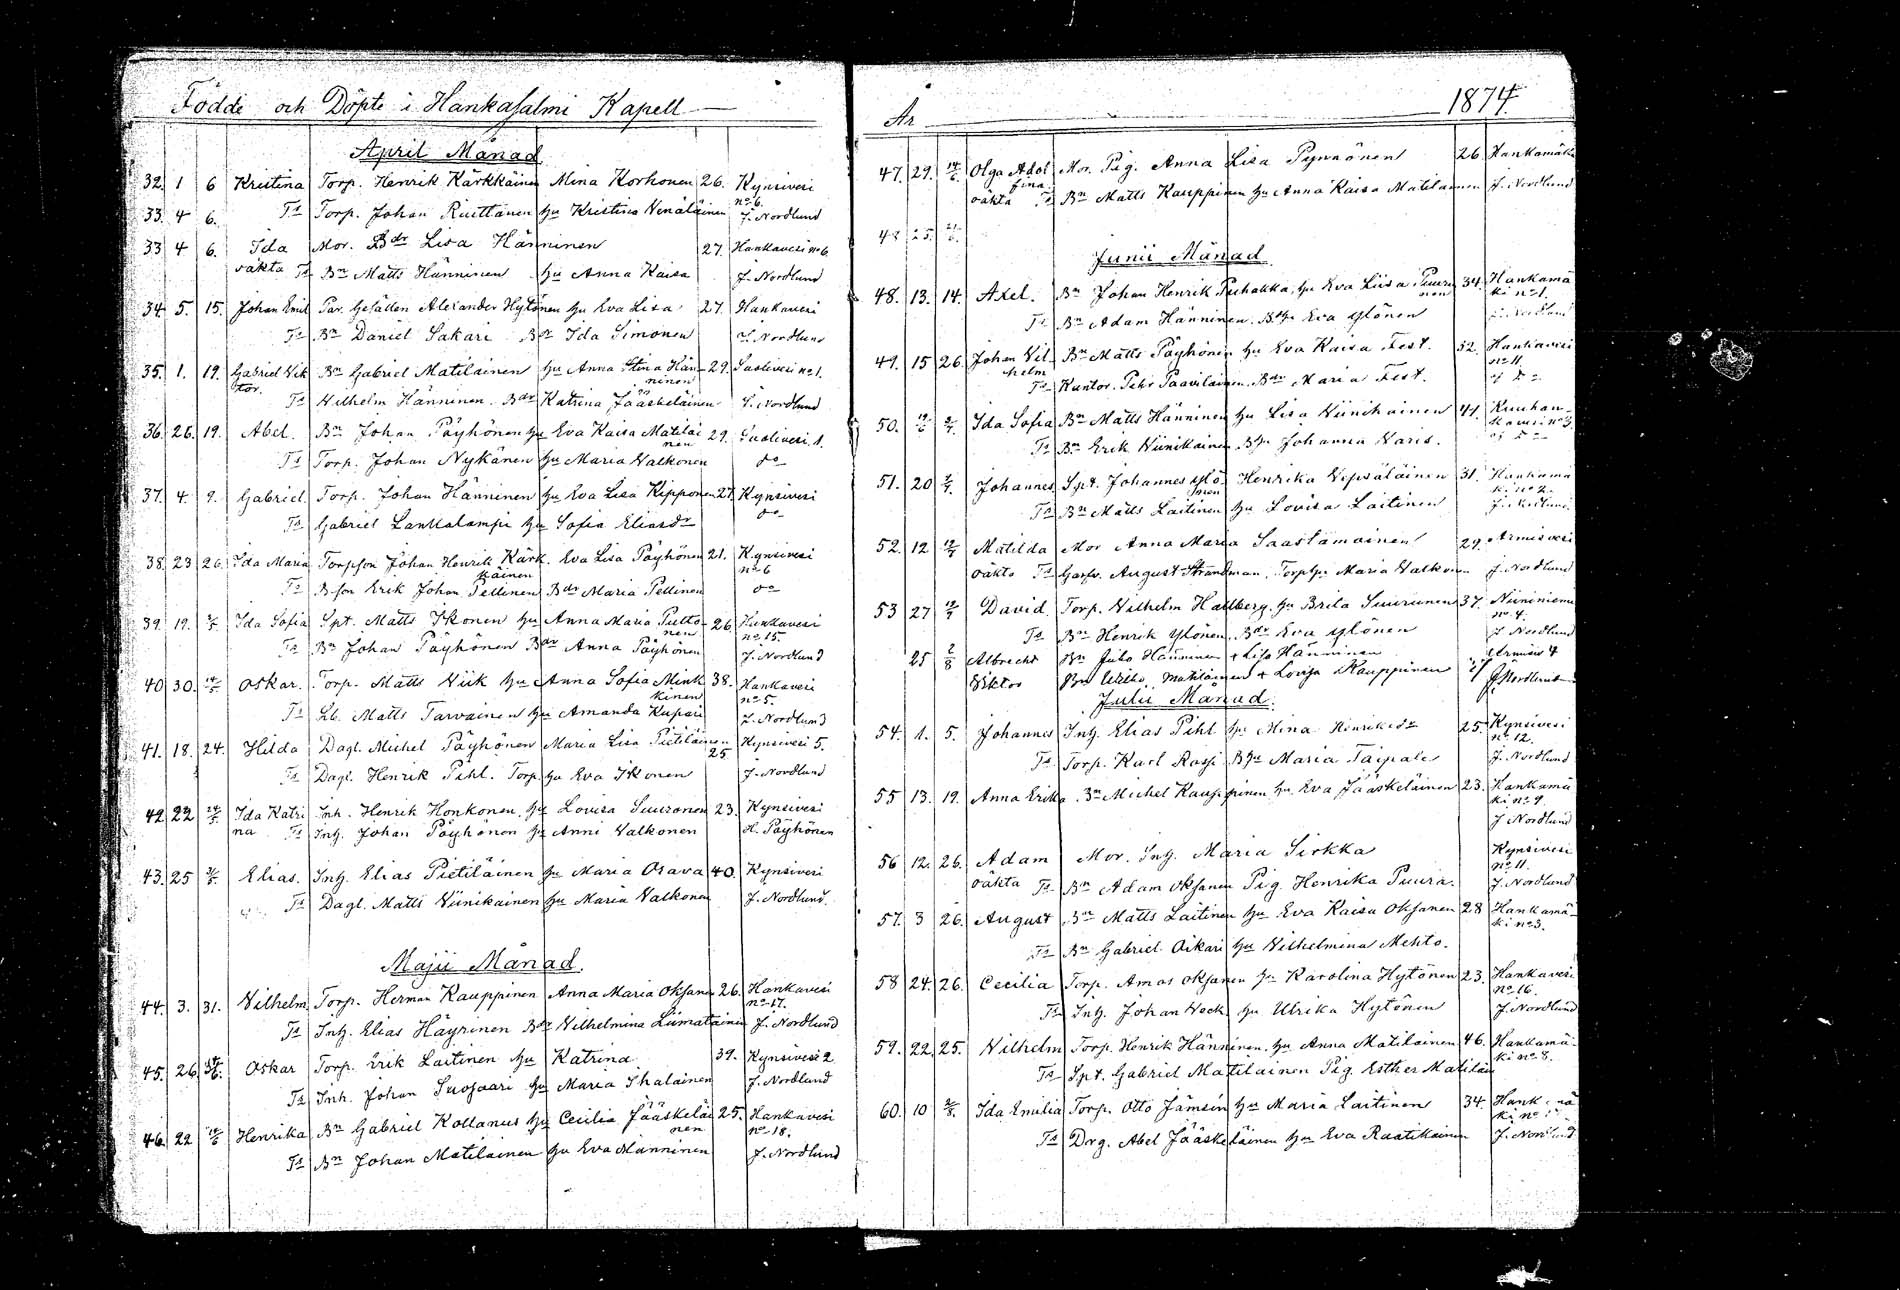 Födde och Döpte i Hankasalmi Kapell
April Månad
32. 1 6 Kristina Torp. Henrik Kärkkäinen Mina Korhonen 26. Kynsivesi
no 6.
33. 4 6. Ts Torp. Johan Ruittanen hu Kristina Venäläinen J. Nordlund
33 4 6. Ida Mor. Bdr Lisa Hänninen 27. Hankavesi no 6
oäkta Ts Bn Matts Hänninen hu Anna Kaisa J. Nordlund
34. 5. 15. Johan Emil Par. Gesällen Alexander Hytönen hu Eva Lisa 27. Hankavesi
Ts Bn Daniel Sakari Bdr Ida Simonen J. Nordlund
35. 1. 19. Gabriel Vik Bn Gabriel Matilainen hu Anna Stina Hän- 29. Suolivesi no 1.
tor. ninen
Ts Vilhelm Hänninen. Bdr Katrina Jääskeläinen J. Nordlund
36. 26. 19. Abel. Bn Johan Päyhönen hu Eva Kaisa Matilai 29. Suolivesi 1.
nen
Ts Torp. Johan Nykänen hu Maria Valkonen do
37. 4. 9. Gabriel Torp. Johan Hänninen hu Eva Lisa Kipponen 27. Kynsivesi
Ts Gabriel Lankalampi hu Sofia Eliasdr do
38. 23 26. Ida Maria Torpson Johan Henrik Kärk Eva Lisa Päyhönen 21. Kynsivesi
käinen no 6
Ts B.son Erik Johan Pellinen Bdr Maria Pellinen do
39. 19. 3/5. Ida Sofia Spt. Matts Ikonen hu Anna Maria Putto- 26 Hankavesi
nen no 15.
Ts Bn Johan Päyhönen Bdr Anna Päyhönen J. Nordlund
40 30. Oskar. Torp. Matts Viik hu Anna Sofia Mink 38. Hankavesi
kinen no 5.
Ts Lb. Matts Tarvainen hu Amanda Kupari J. Nordlund
41. 18. 24. Hilda Dagl. Michel Päyhönen Maria Lisa Pietiläinen Kynsivesi 5.
25
Ts Dagl. Henrik Pihl. Torp. hu Eva Ikonen J. Nordlund
42 22 24/5. Ida Katri Inh. Henrik Honkonen, hu Lovisa Suuronen 23. Kynsivesi
na Ts Inh. Johan Päyhönen hu Anni Valkonen H. Päyhönen
43. 25 Elias. Inh. Elias Pietiläinen hu Maria Orava 40. Kynsivesi
Ts Dagl. Matts Viinikainen hu Maria Valkonen J. Nordlund.
Maji Månad.
44. 3. 31. Vilhelm Torp. Herman Kauppinen Anna Maria Oksanen 26. Hankavesi
no 17.
Ts Inh. Elias Häyrinen Bdr Vilhelmina Liimatainen J. Nordlund
45. 26. Oskar Torp. Erik Laitinen hu Katrina 39. Kynsivesi 2
Ts Inh. Johan Suojaari hu Maria Ihalainen J. Nordlund
46. 22 Henrika Bn Gabriel Kollanus hu Cecilia Jääskeläi 25. Hankavesi
nen no 18.
Ts Bn Johan Matilainen hu Eva Manninen J. Nordlund
År 1874.
47. 29. 14/6. Olga Adol Mor. Pig. Anna Lisa Pynnönen 26. Hankamäki
fina.
oäkta Ts Bn Matts Kauppinen hu Anna Kaisa Matilainen J. Nordlund
48 25.
Junii Månad
48. 13. 14. Axel. Bn Johan Henrik Puhakka, hu Eva Liisa Puuru 34. Hankamä
nen ki no 1.
Ts Bn Adam Hänninen. Bhu Eva Ylönen J. Nordlund
49. 15 26. Johan Vil Bn Matts Päyhönen hu Eva Kaisa Fest. 32. Hankavesi
helm no 11.
Ts Kantor. Pehr Paavilainen. Bdr Maria Fest.
50. Ida Sofia Bn Matts Hänninen hu Lisa Viinikainen 41. Kuuhan-
kavesi no 3.
Ts Bn Erik Viinikainen. Bhu Johanna Varis.
51. 20 Johannes Spt. Johannes Ylö Henrika Vepsäläinen 31. Hankamä
nen ki no 2.
Ts Bn Matts Laitinen hu Lovisa Laitinen J. Nordlund
52. 12 12/7 Matilda Mor Anna Maria Saastamoinen 29. Armisvesi
oäkta Ts Garfv. August Strandman, Torp hu Maria Valkonen J. Nordlund
53 27 12/7 David Torp. Vilhelm Hallberg. hu Brita Suuronen 37. Niininiemi
no 4.
Ts Bn Henrik Ylönen. Bdr Eva Ylönen J. Nordlund
25 2/8 Albrecht Bn Juho Hänninen + Lisa Hänninen Armisv 4
Viktor Matilainen + Lovisa Kauppinen J. Nordlund
Julii Månad.
54. 1. 5. Johannes Inh. Elias Pihl hu Mina Henriksdr 25 Kynsivesi
no 12.
Ts Torp. Karl Rossi Bhu Maria Taipale J. Nordlund
55 13. 19. Anna Erika. Bn Michel Kauppinen hu Eva Jääskeläinen 23. Hankamä
ki no 9.
J. Nordlund
56 12. 26. Adam Mor. Inh. Maria Sirkka Kynsivesi
no 11.
oäkta Ts Bn Adam Oksanen Pig. Henrika Puura. J. Nordlund
57. 3 26. August Bn Matts Laitinen hu Eva Kaisa Oksanen 28 Hankamä-
ki no 3.
Ts Bn Gabriel Oikari hu Vilhelmina Mehto.
58 24. 26. Cecilia Torp. Amos Oksanen hu Karolina Hytönen 23. Hankavesi
no 16.
Ts Inh. Johan Vock hu Ulrika Hytönen J. Nordlund
59. 22. 25. Vilhelm Torp. Henrik Hänninen, hu Anna Matilainen 46. Hankamä-
ki no 8.
Ts Spt. Gabriel Matilainen Pig. Esther Matilai
60. 10 Ida Emilia Torp. Otto Jämsén hu Maria Laitinen 34. Hankamä
ki no
Ts Drg. Abel Jääskeläinen hu Eva Raatikainen J. Nordlund